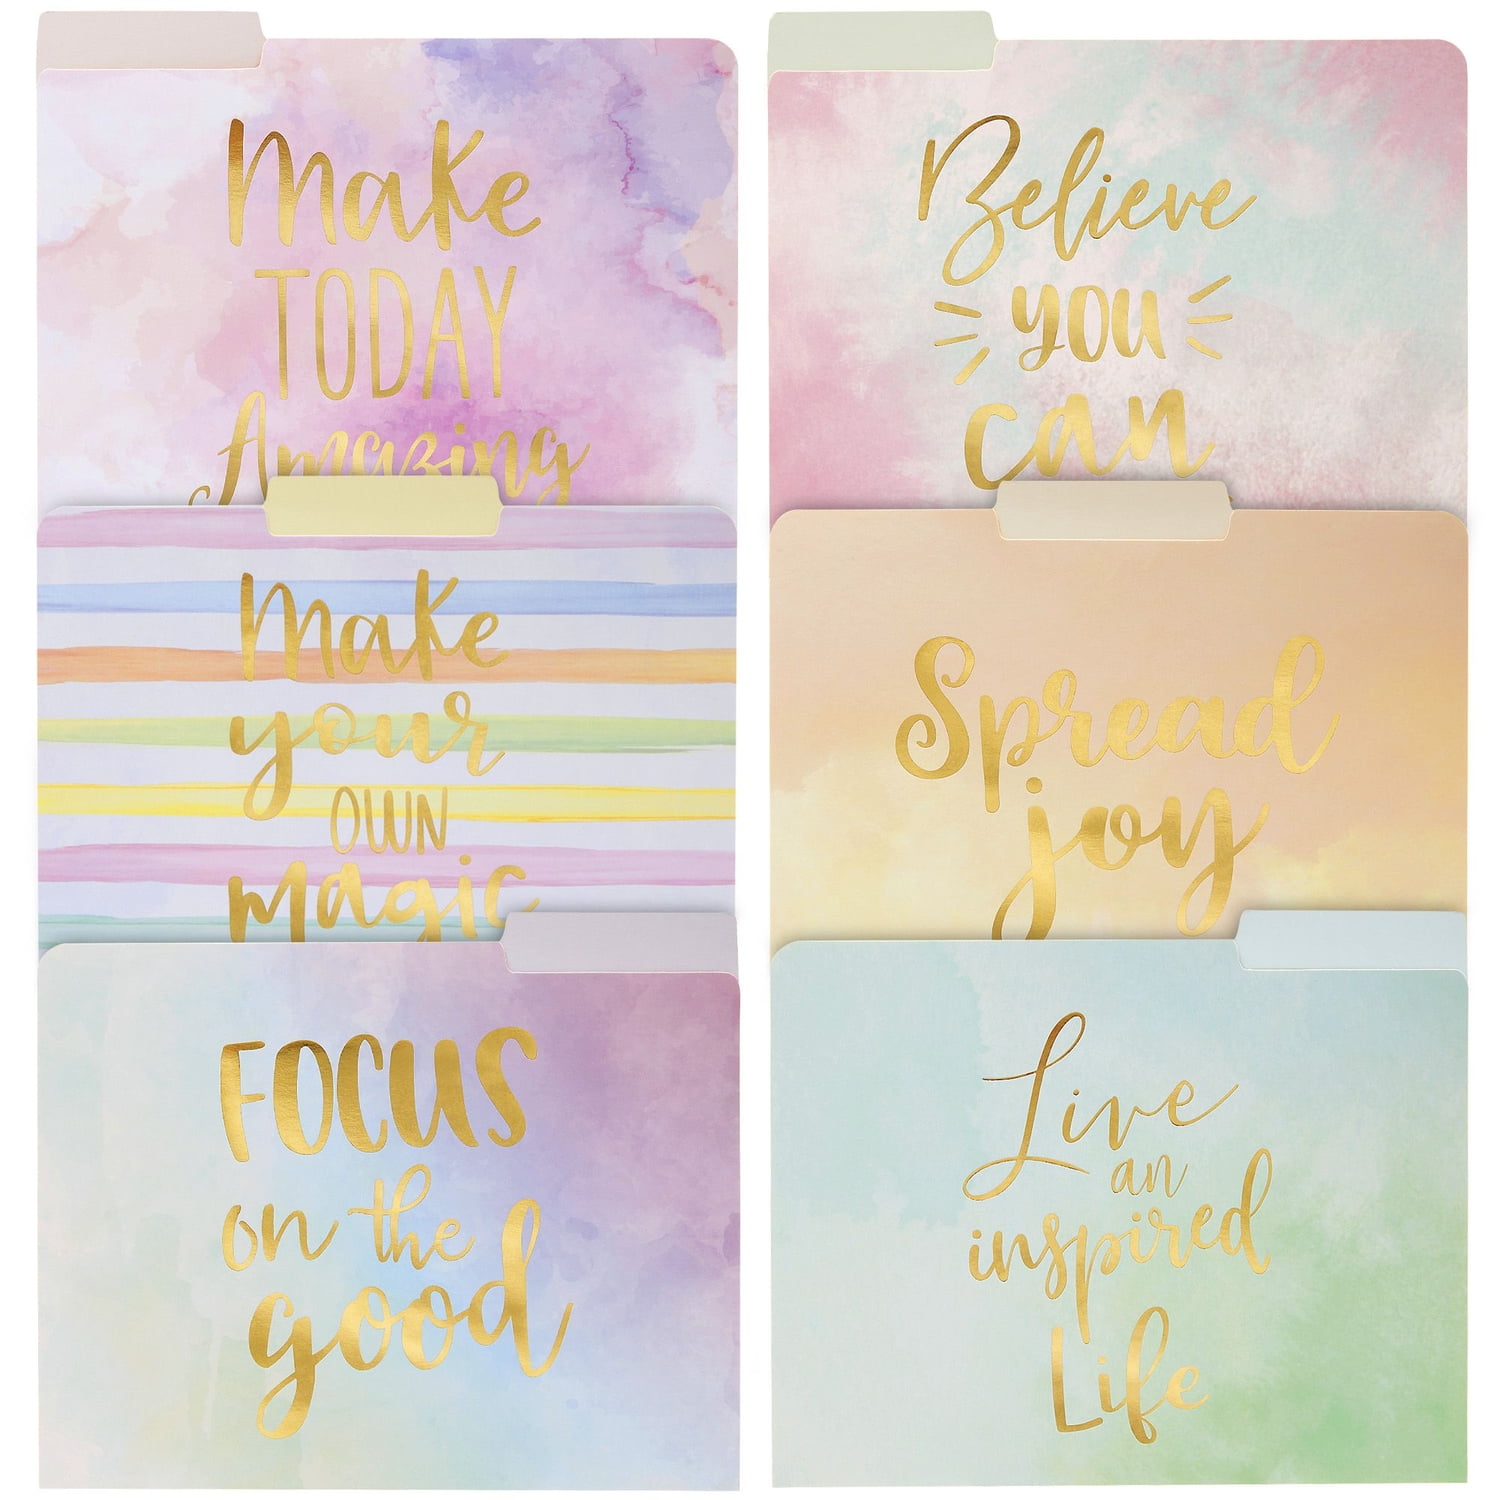 Make
TODAY
Amazing
Believe
you
can
Make
your
OWN
magic
Spread
joy
FOCUS
on the
good
Live
an
inspired
Life